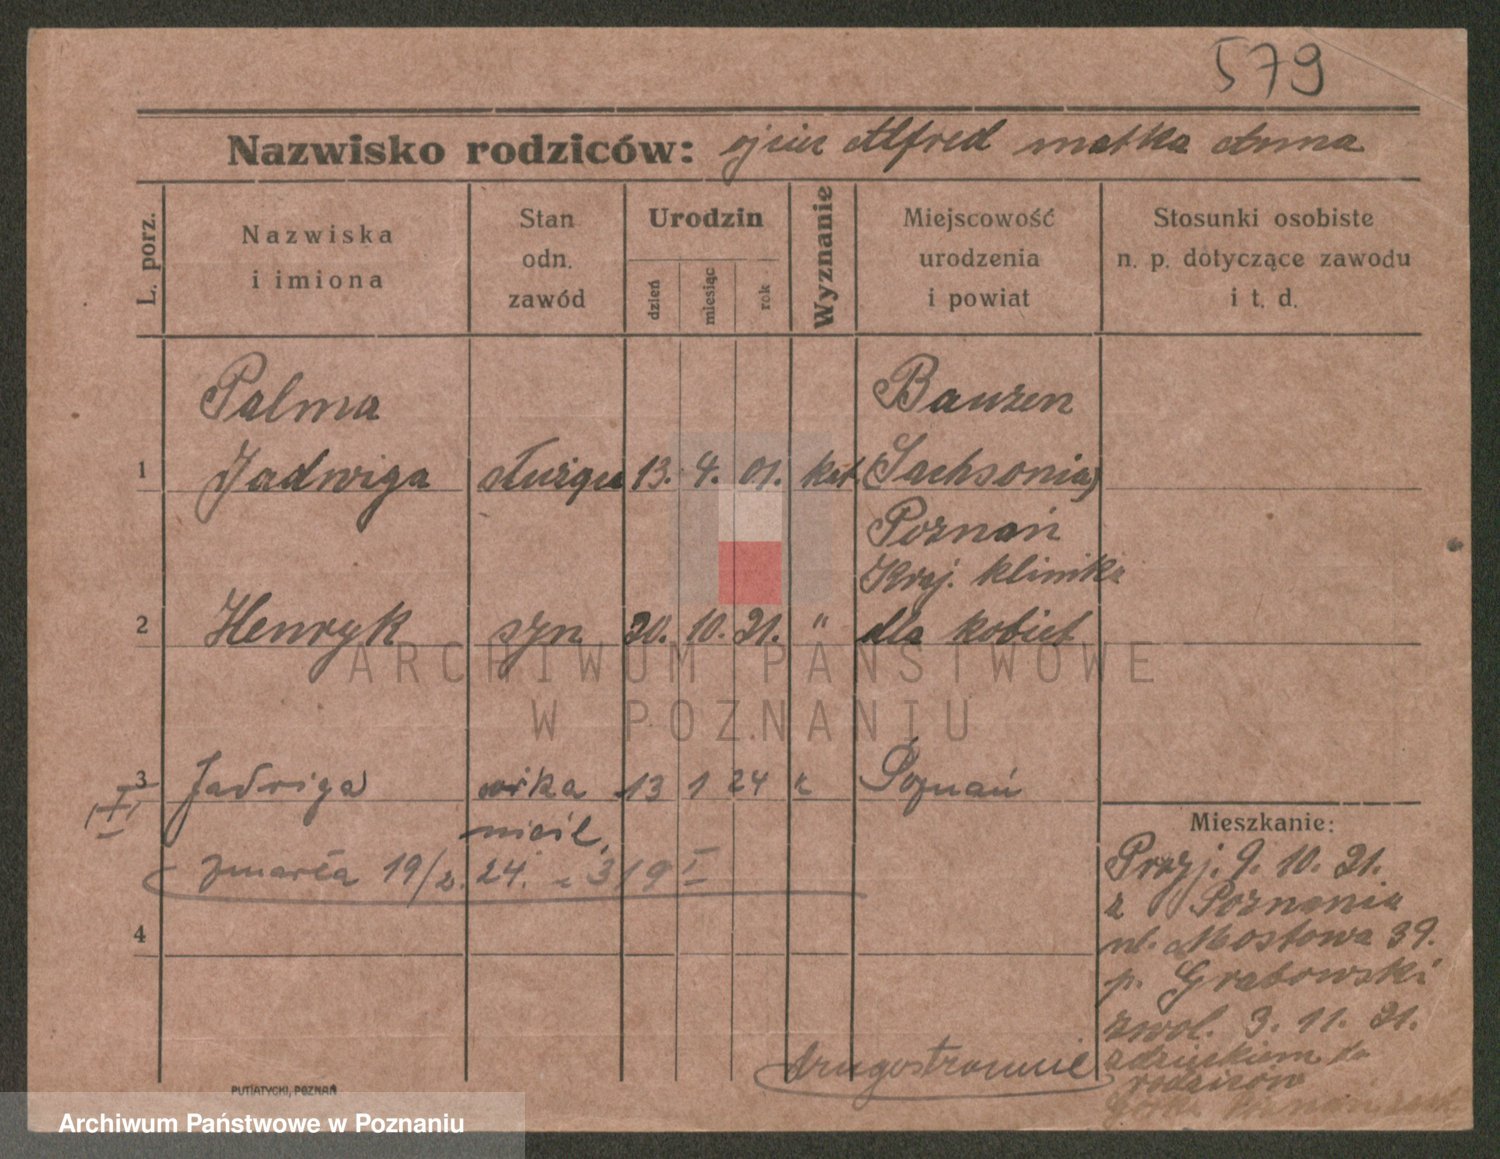 579
Nazwisko rodziców: ojciec Alfred matka Anna
L. porz.
Nazwiska i imiona
Stan odn. zawód
Urodzin
dzień
miesiąc
rok
Wyznanie
Miejscowość urodzenia i powiat
Stosunki osobiste n. p. dotyczące zawodu i t. d.
Palma Bauzen
1 Jadwiga służąca 13. 4. 01. kat. (Sachsonia)
Poznań
Kraj. klinika
2 Henryk syn 30. 10. 21. " dla kobiet
ARCHIWUM PAŃSTWOWE
W POZNANIU
3 Jadwiga córka 13 1 24 k Poznań
nieśl.
zmarła 19/2. 24. 319 I
4
Mieszkanie:
Przyj. 9. 10. 21.
z Poznania
ul. Mostowa 39.
p. Grabowski
zwol. 3. 11. 21.
z dzieckiem do
rodziców
drugostronnie
PUTIATYCKI, POZNAŃ
Archiwum Państwowe w Poznaniu